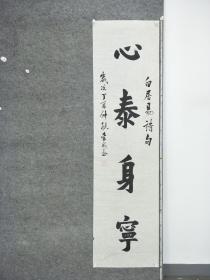 白居易诗句
心泰身寧
歲次丁酉仲秋